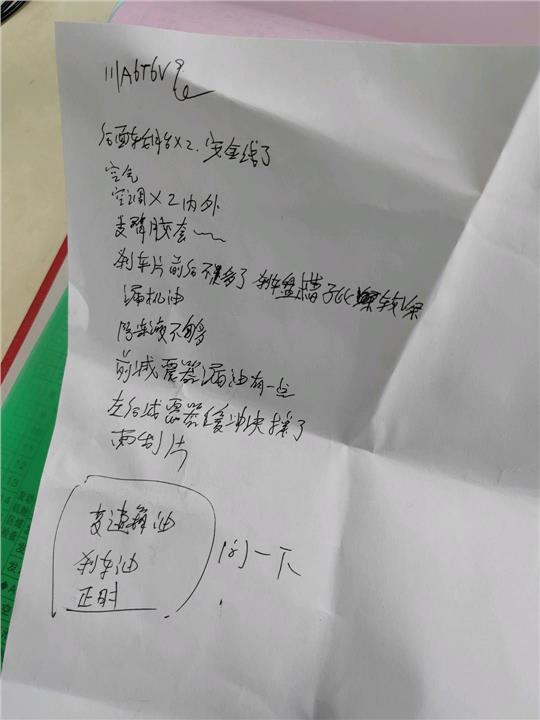 川A6T6V9
后面轮胎X2.安全线了
空气
空调X2内外
支臂胶套
刹车片前后不多了 刹车盘槽子
漏机油
防冻液不够
前减震器漏油有一点
左后减震器缓冲块掉了
雨刮片
变速箱油
刹车油
正时
问一下